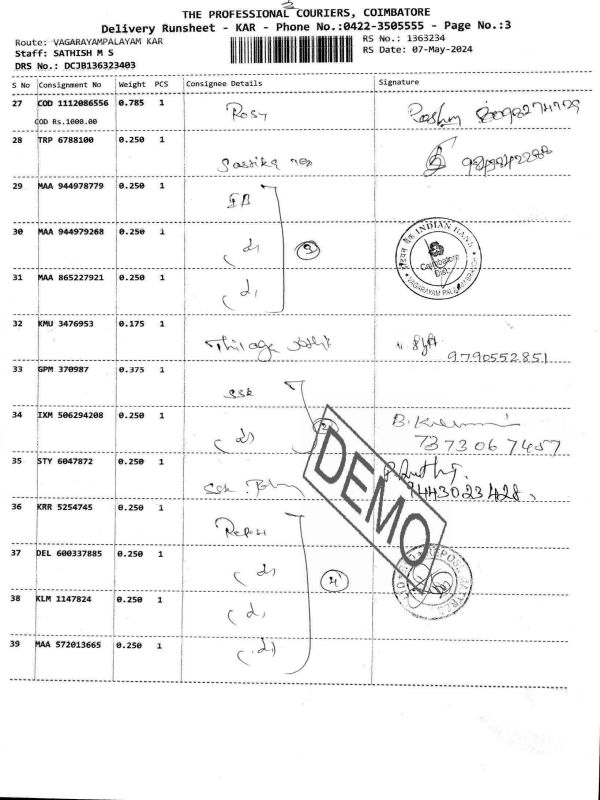 THE PROFESSIONAL COURIERS, COIMBATORE
Delivery Runsheet - KAR - Phone No.:0422-3505555 - Page No.:3
Route: VAGARAYAMPALAYAM KAR
RS No.: 1363234
Staff: SATHISH M S
RS Date: 07-May-2024
DRS No.: DCJB136323403
S No Consignment No Weight PCS Consignee Details Signature
27 COD 1112086556 0.785 1 Rosy
COD Rs.1000.00
28 TRP 6788100 0.250 1
29 MAA 944978779 0.250 1 IB
30 MAA 944979268 0.250 1 3
INDIAN BANK
Coimbatore
Dist.
VAGARAYAM PALAYAM BRANCH
31 MAA 865227921 0.250 1
32 KMU 3476953 0.175 1
9790552851
33 GPM 370987 0.375 1 SSK
34 IXM 506294208 0.250 1 2
7373067457
35 STY 6047872 0.250 1 SSK
9443023428
36 KRR 5254745 0.250 1
DEMO
37 DEL 600337885 0.250 1 4
38 KLM 1147824 0.250 1
39 MAA 572013665 0.250 1